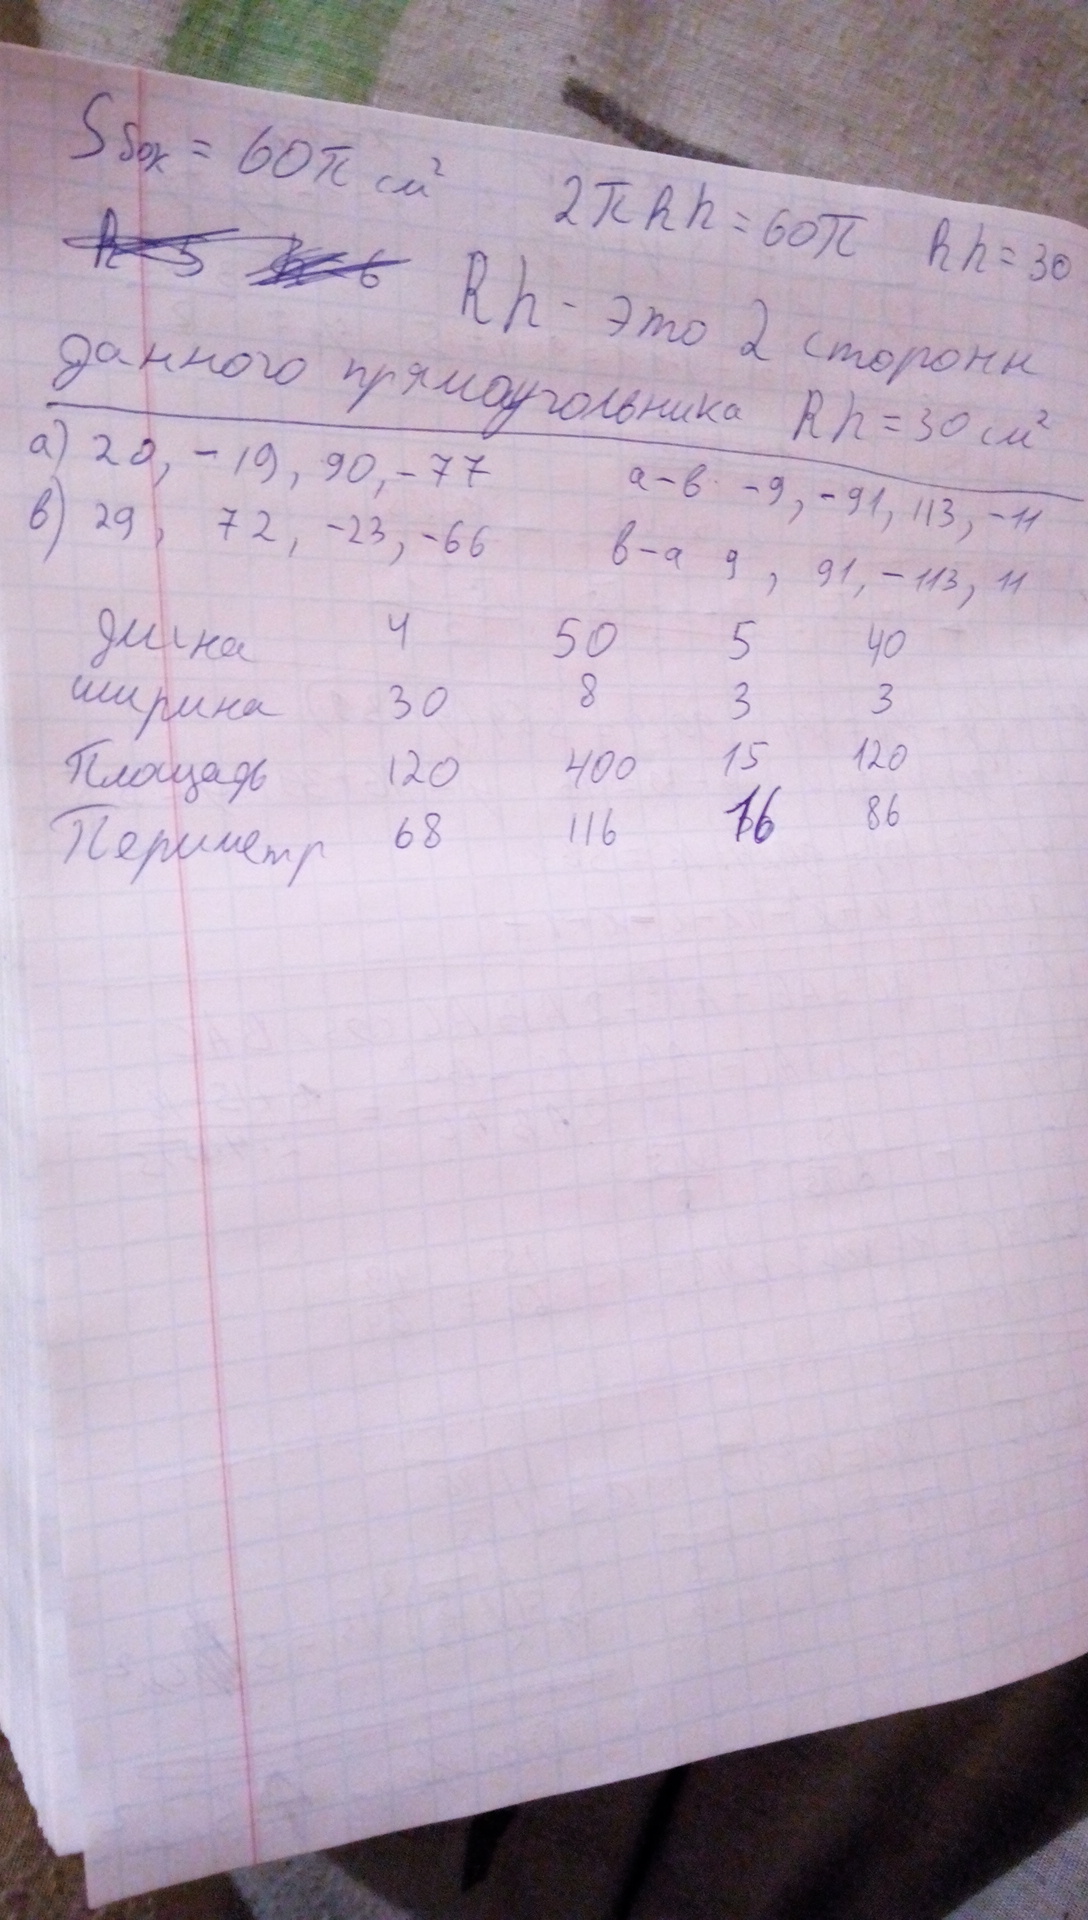 Sбок = 60π см² 2πRh = 60π Rh = 30
Rh - это 2 стороны
данного прямоугольника Rh = 30 см²
а) 20, -19, 90, -77 а-в -9, -91, 113, -11
в) 29, 72, -23, -66 в-а 9, 91, -113, 11
длина 4 50 5 40
ширина 30 8 3 3
Площадь 120 400 15 120
Периметр 68 116 16 86